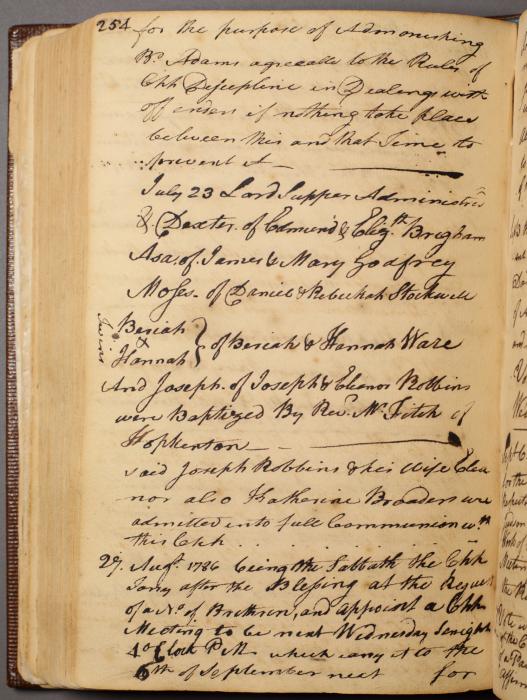 254 for the purpose of Admonishing
Br. Adams agreeable to the Rules of
Chh Discepline in Dealing with
offenders if nothing take place
between this and that Time to
prevent it
July 23 Lord Supper Administrd
& Dexter of Edmund & Elizth Brigham
Asa of James & Mary Godfrey
Moses of Daniel & Rebeckah Stockwell
Twins
Beriah
& Hannah } of Beriah & Hannah Ware
And Joseph of Joseph & Eleanor Robbins
were Baptized By Revd. Mr. Fitch of
Hopkenton
said Joseph Robbins & his Wife Elea
nor also Katharine Broaders were
admitted into full Communion with
this Chh
27. Augt. 1786 being the Sabbath the Chh
Tarry after the Blessing at the Request
of a No. of Brethren, and appoint a Chh
Meeting to be next Wednesday Senight
4 o Clock P.M. which carry it to the
6th of September next for